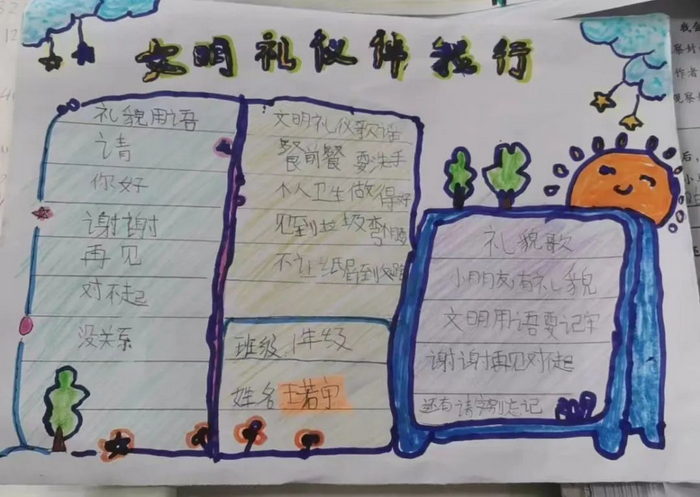 文明礼仪伴我行
礼貌用语
请
你好
谢谢
再见
对不起
没关系
文明礼仪歌谣
餐前餐 要洗手
个人卫生做得好
见到垃圾弯
不让纸屑到
班级 1年级
姓名 王若宇
礼貌歌
小朋友有礼貌
文明用语要记牢
谢谢再见对不起
还有请字别忘记